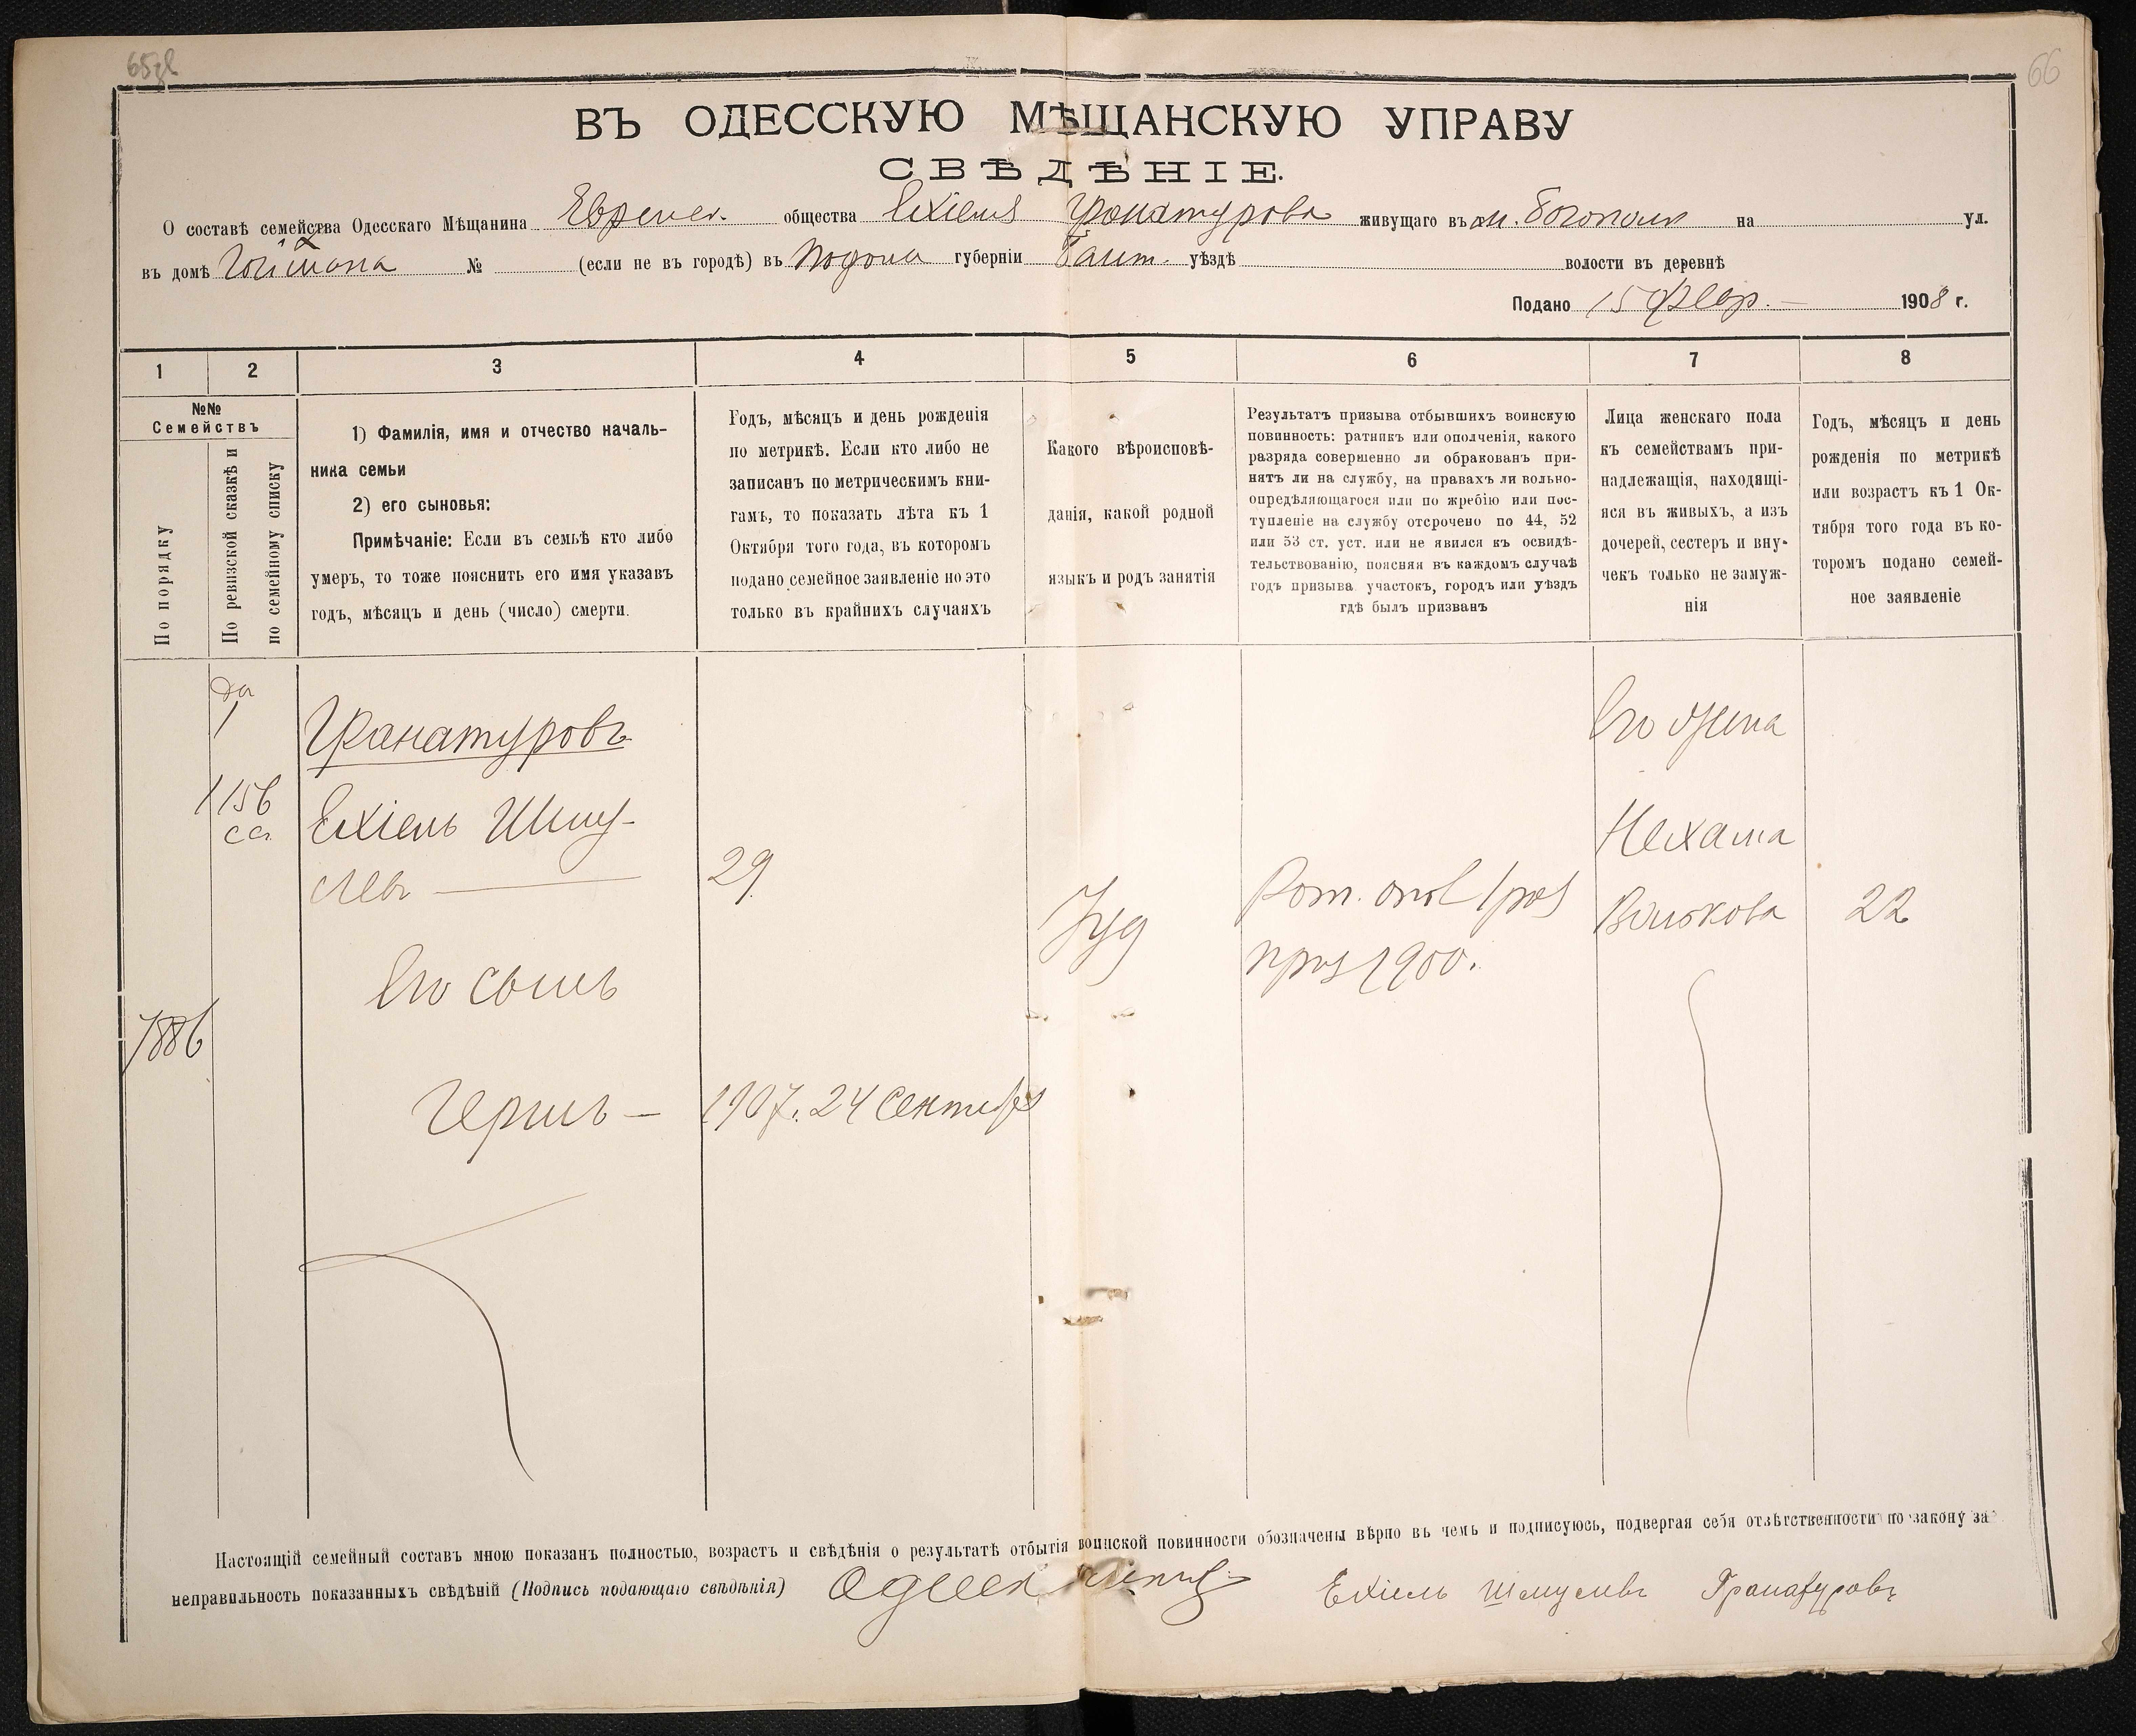 65зв
66
ВЪ ОДЕССКУЮ МѢЩАНСКУЮ УПРАВУ
СВѢДѢНІЕ.
О составѣ семейства Одесскаго Мѣщанина Еврейск. общества Ехіеля Гранатурова живущаго въ м. Богополь на ул.
въ домѣ № (если не въ городѣ) въ Подольс губерніи Балт. уѣздѣ волости въ деревнѣ
Подано 15 Февр. — 1908 г.
1 2 3 4 5 6 7 8
№№
Семействъ
По порядку
По ревизской сказкѣ и
по семейному списку
1) Фамилія, имя и отчество началь-
ника семьи
2) его сыновья:
Примѣчаніе: Если въ семьѣ кто либо
умеръ, то тоже пояснить его имя указавъ
годъ, мѣсяцъ и день (число) смерти.
Годъ, мѣсяцъ и день рожденія
по метрикѣ. Если кто либо не
записанъ по метрическимъ кни-
гамъ, то показать лѣта къ 1
Октября того года, въ которомъ
подано семейное заявленіе но это
только въ крайнихъ случаяхъ
Какого вѣроисповѣ-
данія, какой родной
языкъ и родъ занятія
Результатъ призыва отбывшихъ воинскую
повинность: ратникъ или ополченія, какого
разряда совершенно ли обракованъ при-
нятъ ли на службу, на правахъ ли вольно-
опредѣляющагося или по жребію или пос-
тупленіе на службу отсрочено по 44, 52
или 53 ст. уст. или не явился къ освидѣ-
тельствованію, поясняя въ каждомъ случаѣ
годъ призыва участокъ, городъ или уѣздъ
гдѣ былъ призванъ
Лица женскаго пола
къ семействамъ при-
надлежащія, находящі-
яся въ живыхъ, а изъ
дочерей, сестеръ и вну-
чекъ только не замуж-
нія
Годъ, мѣсяцъ и день
рожденія по метрикѣ
или возрастъ къ 1 Ок-
тября того года въ ко-
торомъ подано семей-
ное заявленіе
1
Гранатуровъ
Его жена
1156
сс
Ехіель Шму-
левъ —
29
Нехама
Волькова
22
Іуд
Рат. опол 1 раз
приз 1900.
Его сынъ
7886
Гершъ — 1907. 24 Сентября
Настоящій семейный составъ мною показанъ полностью, возрастъ и свѣдѣнія о результатѣ отбытія воинской повинности обозначены вѣрно въ чемъ и подписуюсь, подвергая себя отвѣтственности по закону за
неправильность показанныхъ свѣдѣній (Подпись подающаго свѣдѣнія) Одесск мѣщ Ехіель Шмулевъ Гранатуровъ